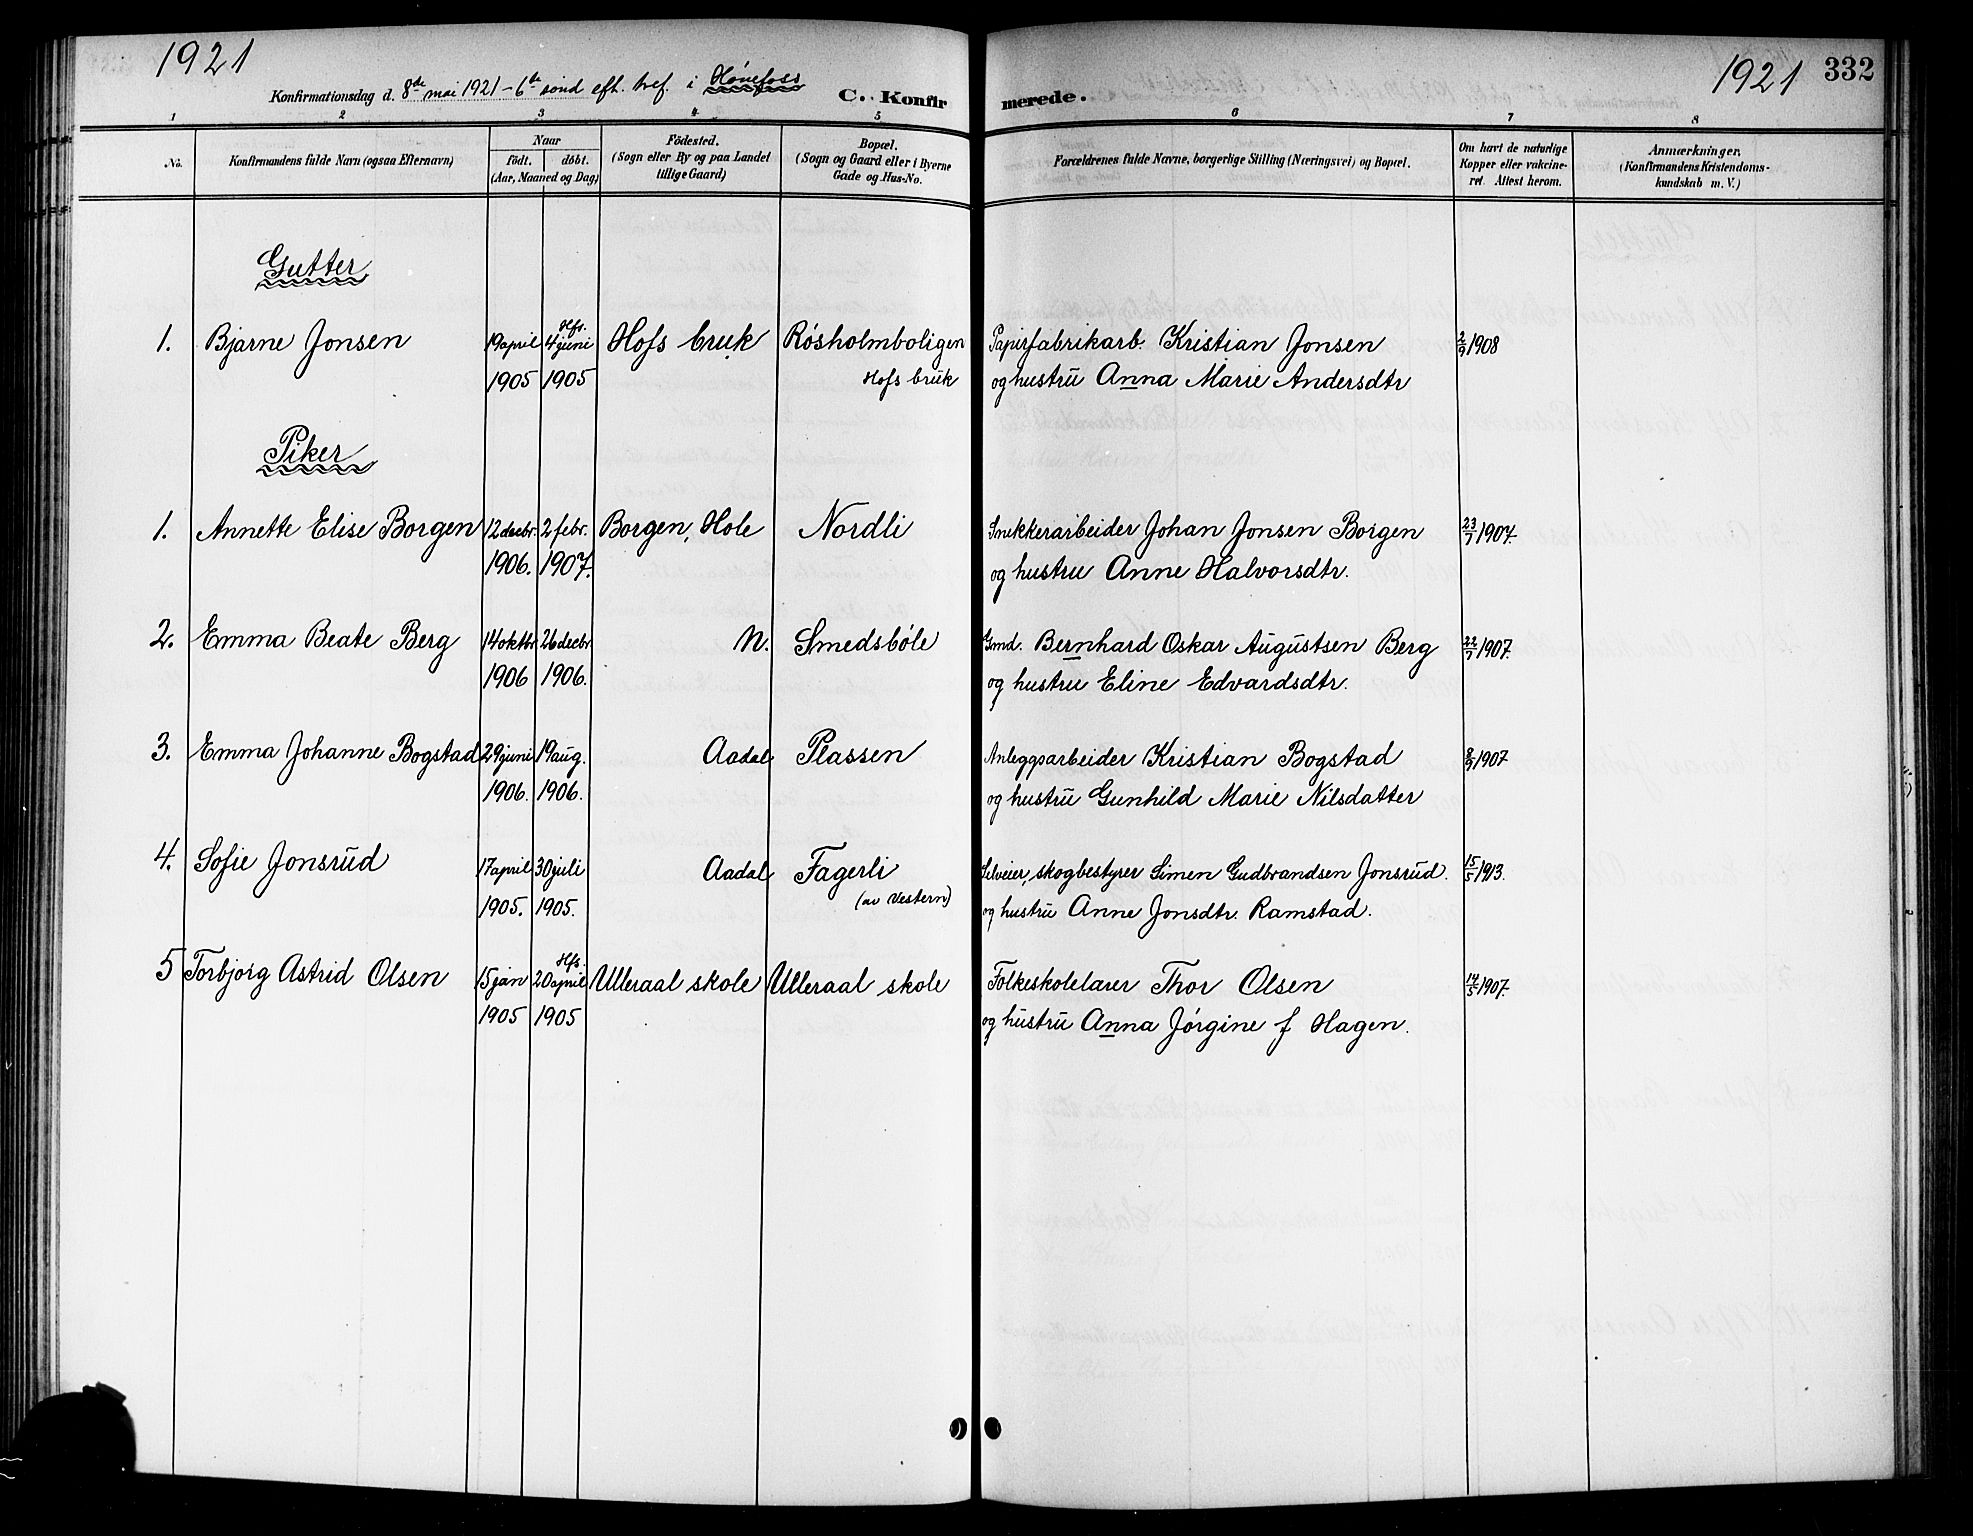 1921
Konfirmationsdag d. 8de mai 1921 - 6te sönd eft. tref. i Hónefoss
C. Konfir
merede.
1921
332
1 2 3 4 5 6 7 8
No.
Konfirmandens fulde Navn (ogsaa Efternavn)
Naar
födt. döbt.
(Aar, Maaned og Dag)
Födested.
(Sogn eller By og paa Landet
tillige Gaard)
Bopæl.
(Sogn og Gaard eller i Byerne
Gade og Hus-No.
Forældrenes fulde Navne, borgerlige Stilling (Næringsvei) og Bopæl.
Om havt de naturlige
Kopper eller vakcine-
ret. Attest herom.
Anmærkninger.
(Konfirmandens Kristendoms-
kundskab m. V.)
Gutter
Hfs.
1. Bjarne Jonsen 19 april 4 juni Hofs bruk Rósholmboligen Papirfabrikarb. Kristian Jonsen 2/9 1908
1905 1905 Hofs bruk og hustru Anna Marie Andersdtr
Piker
1. Annette Elise Borgen 12 decbr. 2 febr. Borgen, Hole Nordli Snekkerarbeider Johan Jonsen Borgen 23/7 1907.
1906. 1907. og hustru Anne Halvorsdtr.
2. Emma Beate Berg 14 oktbr 26 decbr. N. Smedsbóle Gmd. Bernhard Oskar Augustsen Berg 22/7 1907.
1906 1906. og hustru Eline Edvardsdtr.
3. Emma Johanne Bogstad 29 juni 19 aug. Aadal Plassen Anleggsarbeider Kristian Bogstad 8/9 1907
1906. 1906. og hustru Gunhild Marie Nilsdatter
4. Sofie Jonsrud 17 april 30 juli Aadal Fagerli Selveier, skogbestyrer Simen Gudbrandsen Jonsrud. 15/5 1913.
1905. 1905. (av Vestern) og hustru Anne Jonsdtr. Ramstad.
Hfs.
5 Torbjorg Astrid Olsen 15 jan 20 april Ulleraal skole Ulleraal skole Folkeskolelærer Thor Olsen 14/5 1907.
1905 1905 og hustru Anna Jórgine f Hagen.